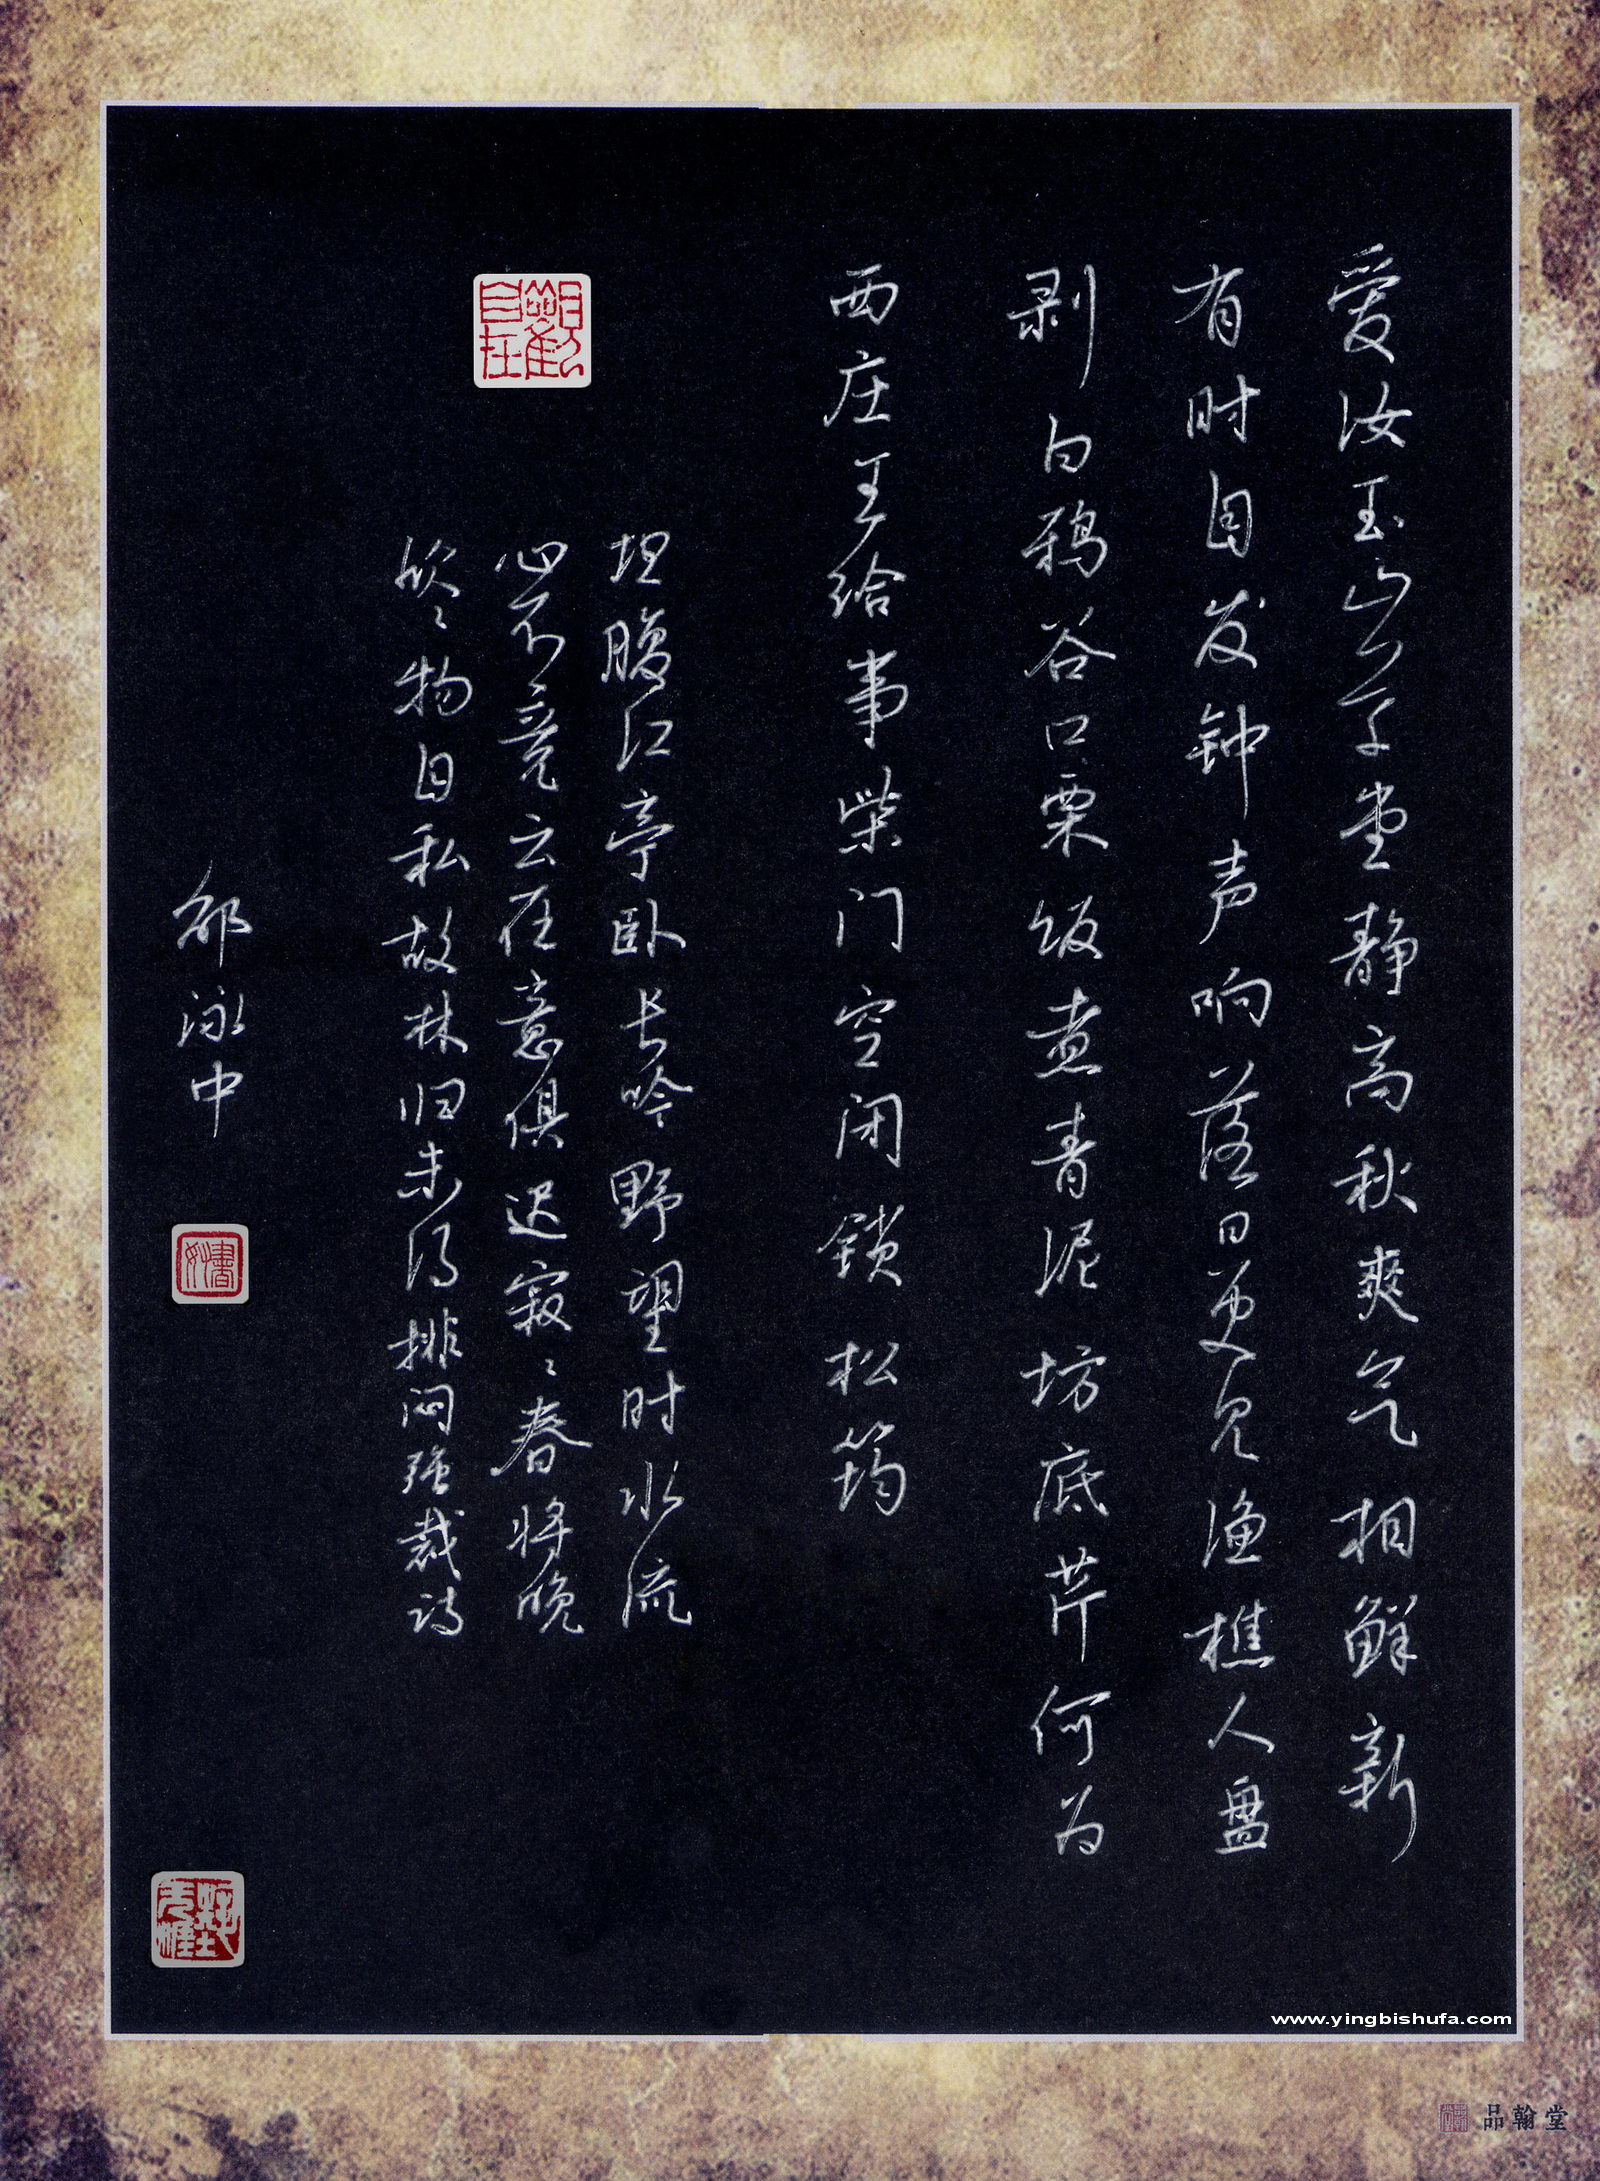 爱汝玉山草堂静高秋爽气相鲜新
有时自发钟声响落日更见渔樵人盘
剥白鸦谷口栗饭煮青泥坊底芹何为
西庄王给事柴门空闭锁松筠
观自在
坦腹江亭卧长吟野望时水流
心不竞云在意俱迟寂〻春将晚
欣〻物自私故林归未得排闷强裁诗
邹泳中
www.yingbishufa.com
品翰堂